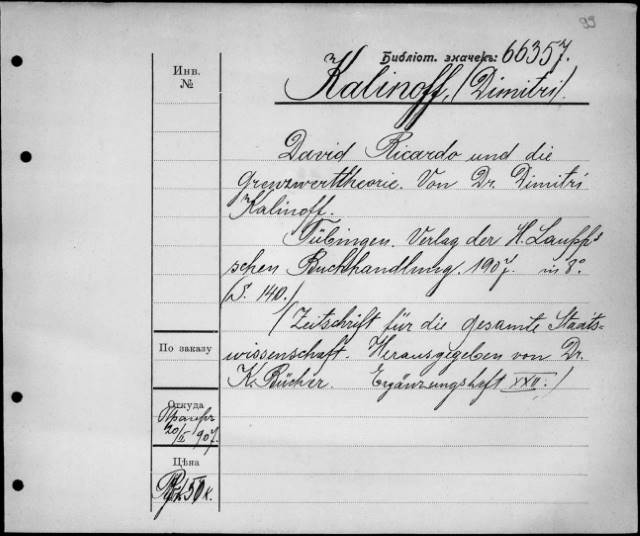 99
Библіот. значекъ: 66357.
Инв.
№
Kalinoff, (Dimitri).
David Ricardo und die
Grenzwerttheorie. Von Dr. Dimitri
Kalinoff.
Tübingen. Verlag der H. Laupp's
schen Buchhandlung. 1907. in 8°.
(S. 140.)
(Zeitschrift für die gesamte Staats=
wissenschaft. Herausgegeben von Dr.
K. Bücher. Ergänzungsheft XXII.)
По заказу
Откуда
20/II 907.
Цѣна
50 к.